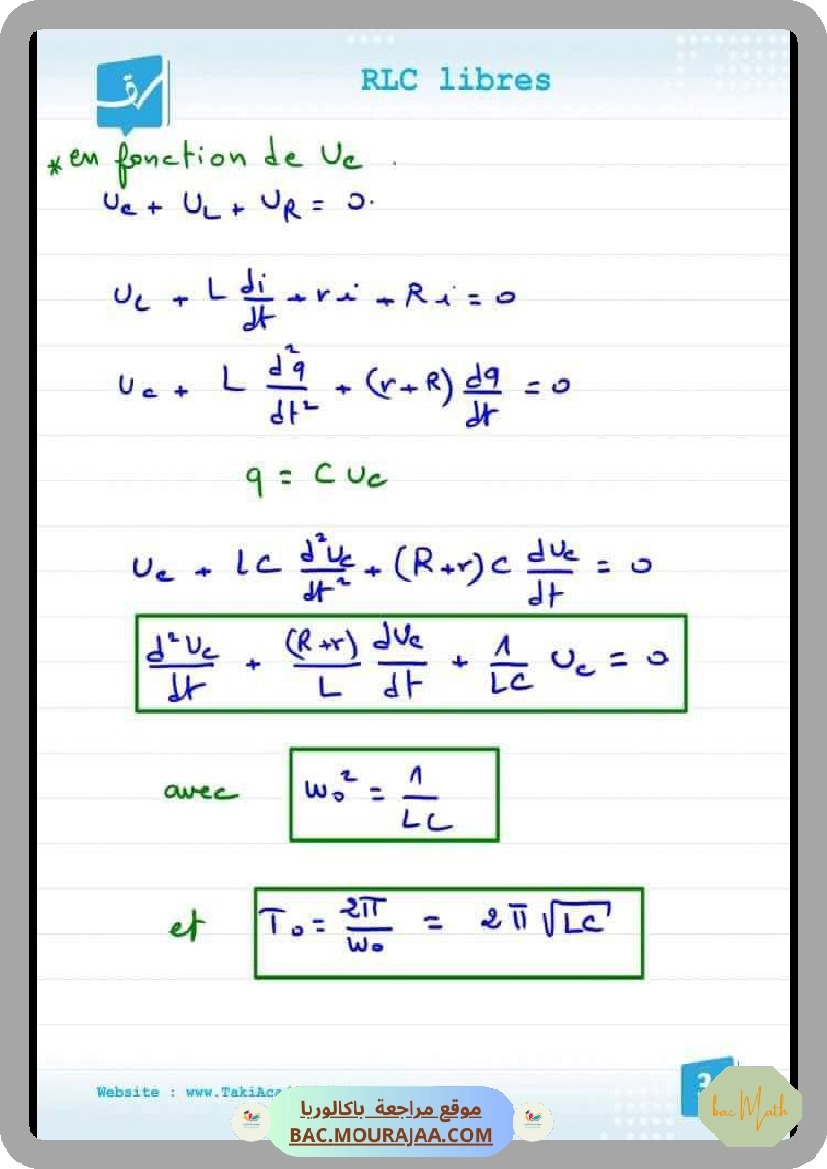 RLC libres
* en fonction de Uc .
Uc + UL + UR = 0.
Uc + L di/dt + r i + R i = 0
Uc + L d²q/dt² + (r+R) dq/dt = 0
q = C Uc
Uc + LC d²Uc/dt² + (R+r) C dUc/dt = 0
d²Uc/dt + (R+r)/L dUc/dt + 1/LC Uc = 0
avec W₀² = 1/LC
et T₀ = 2π/W₀ = 2π √LC
Website : www.TakiAc
موقع مراجعة باكالوريا
BAC.MOURAJAA.COM
bac Math